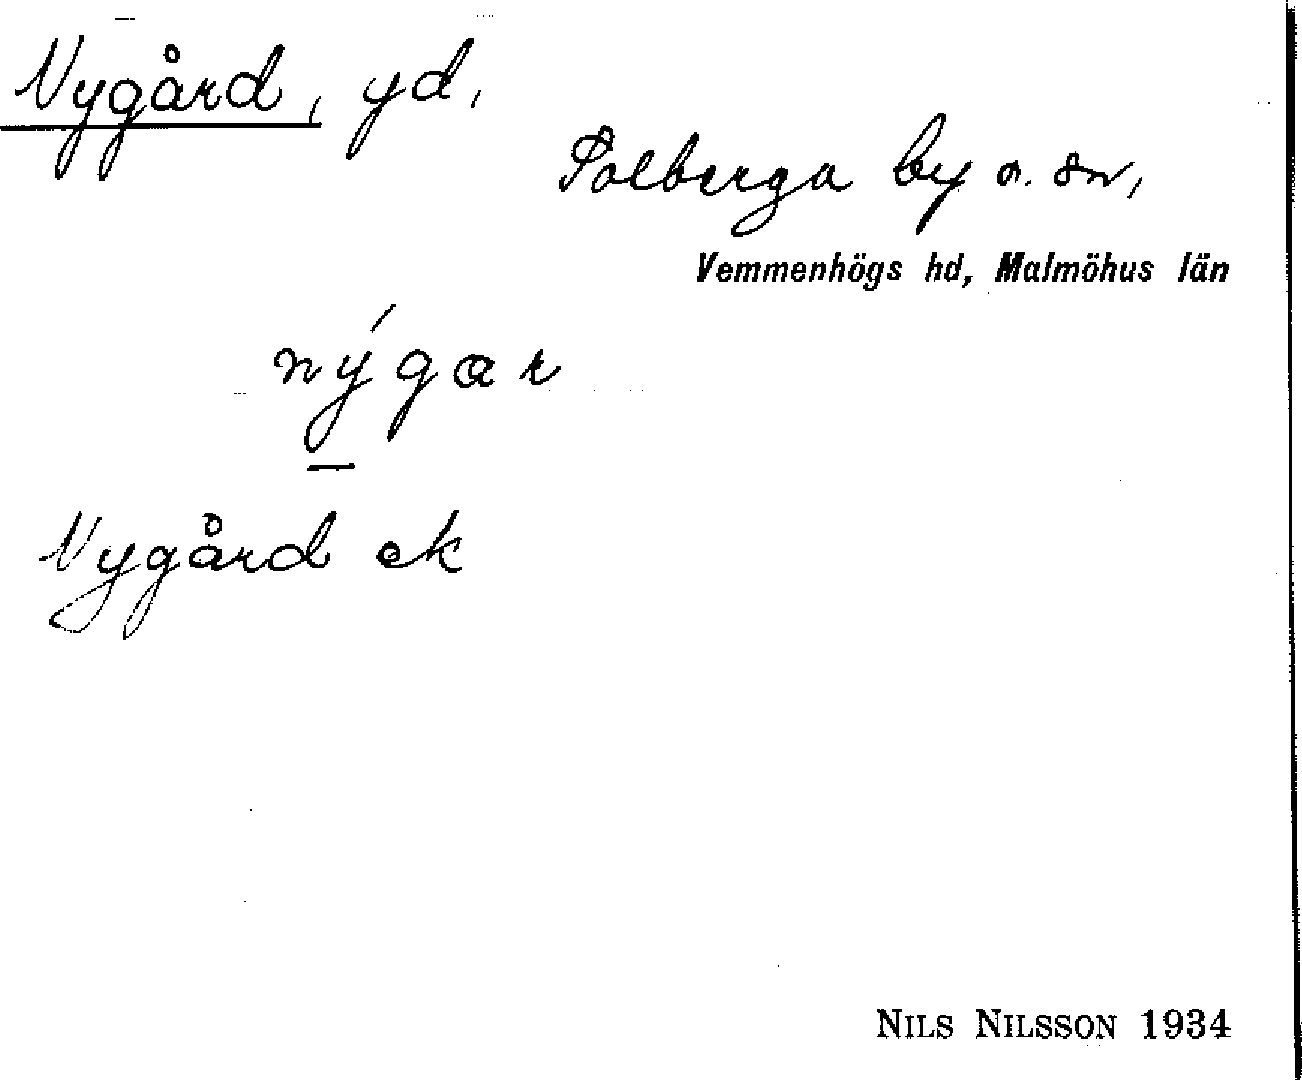 Nygård, gd,
Solberga by o. sn,
Vemmenhögs hd, Malmöhus län
nýgar
Nygård ek
NILS NILSSON 1934